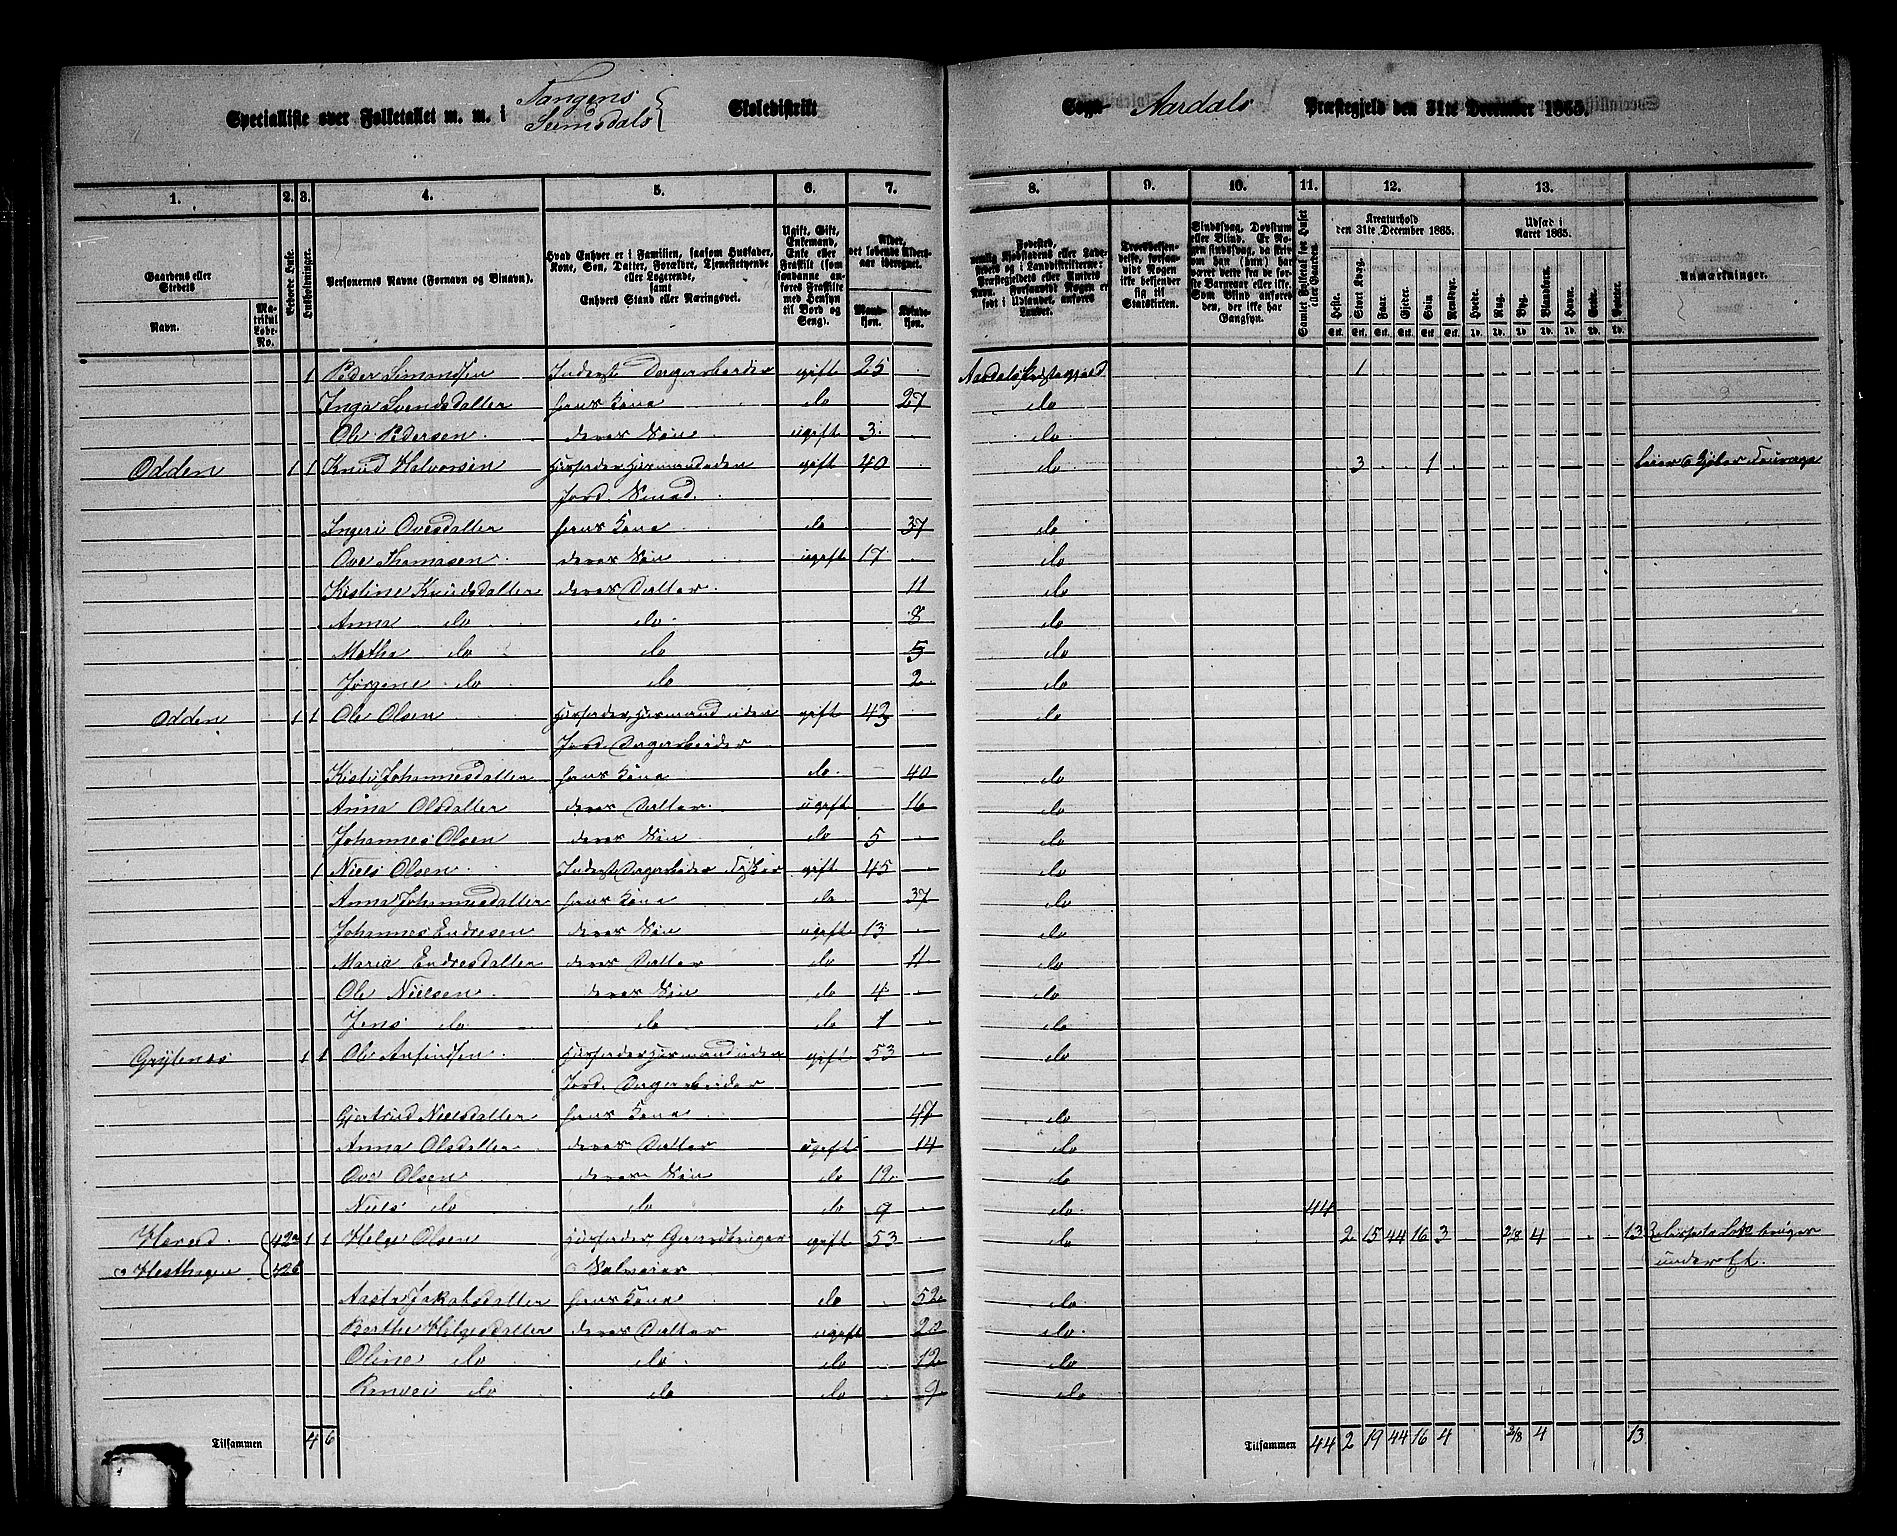 Specialliste over Folketallet m. m. i Tangens Seimsdals Skoledistrikt
Sogn Aardals Præstegjeld den 31te December 1865.
1. 2. 3. 4. 5. 6. 7. 8. 9. 10. 11. 12. 13.
Gaardens eller Stedets
Navn.
Matrikul Løbe-No.
Beboede Huse.
Husholdninger.
Personernes Navne (Fornavn og Binavn).
Hvad Enhver er i Familien, saasom Husfader, Kone, Søn, Datter, Forældre, Tjenestetyende eller Logerende, samt Enhvers Stand eller Næringsvei.
Ugift, Gift, Enkemand, Enke eller Fraskilt (som saadanne anføres Fraskilte med Hensyn til Bord og Seng).
Alder, det løbende Aldersaar iberegnet.
Mandkjøn.
Kvindekjøn.
Fødested,
Troesbekjendelse, forsaavidt Nogen ikke bekjender sig til Statskirken.
Sindssvag, Døvstum eller Blind.
Samlet Folketal for Huset eller Gaarden.
Kreaturhold den 31te December 1865.
Heste. Stort Kvæg. Faar. Gjeder. Svin. Rensdyr.
Udsæd i Aaret 1865.
Hvede. Rug. Byg. Blandkorn. Havre. Erter. Poteter.
Anmærkninger.
1 Peder Simondsen Inderst Dagarbeider gift 25 Aardals Præstegjeld 1
Inga Svendsdatter hans Kone do 27 do
Ole Pedersen deres Søn ugift 3 do
Odden 1 1 Knud Halvorsen Husfader Husmand uden gift 40 do 3 1
Jord. Smed
Ingeri Ovesdatter hans Kone do 37 do
Ove Thomasen deres Søn ugift 17 do
Kistine Knudsdatter deres Datter 11 do
Anna do do 8 do
Mathe do do 5 do
Jørgene do do 2 do
Odden 1 1 Ole Olsen Husfader, Husmand uden gift 43 do
Jord. Dagarbeider
Kisti Johannesdatter hans Kone do 40 do
Anna Olsdatter deres Datter ugift 16 do
Johannes Olsen deres Søn do 5 do
1 Niels Olsen Inderst Dagarbeider Fisker gift 45 do
Anna Johannesdatter hans Kone do 37 do
Johannes Endresen deres Søn ugift 13 do
Maria Endresdatter deres Datter do 11 do
Ole Nielsen deres Søn do 4 do
Jens do do do 1 do
Grytenes 1 1 Ole Anfindsen Husfader Husmand uden gift 53 do
Jord. Dagarbeider
Gjertrud Nielsdatter hans Kone 47 do
Anna Olsdatter deres Datter ugift 14 do
Ove Olsen deres Søn do 12 do
Niels do do do 9 do 44
Hereid 42a 1 1 Helge Olsen Husfader, Gaardbruger gift 53 do 2 15 44 16 3 2/8 4 13
o Hesthagen 42b o Selveier under Et.
Aasta Jakobsdatter hans Kone do 52 do
Berthe Helgesdatter deres Datter ugift 20 do
Oline do do do 12 do
Ranvei do do do 9 do
Tilsammen 4 6
Tilsammen 44 2 19 44 16 4 2/8 4 13